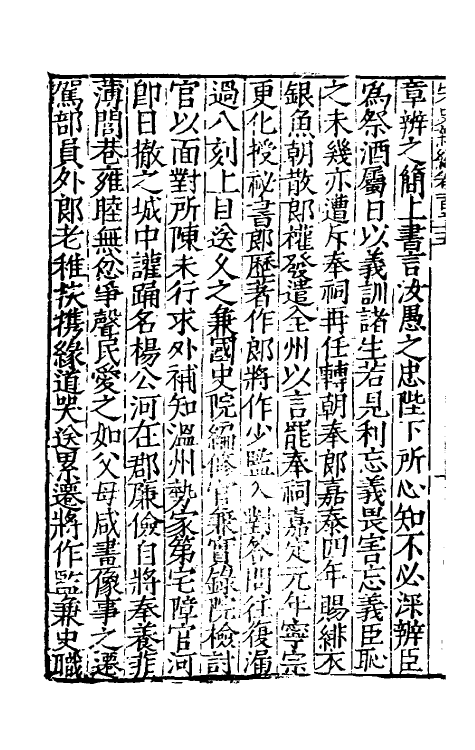 章辨之簡上書言汝愚之忠陛下所心知不必深辨臣
為祭酒屬日以義訓諸生若見利忘義畏害忘義臣恥
之未幾亦遭斥奉祠再任轉朝奉郎嘉泰四年賜緋衣
銀魚朝散郎權發遣全州以言罷奉祠嘉定元年寧宗
更化授祕書郎歷著作郎將作少監入對答問往復漏
過八刻上目送父之兼國史院編修官兼實錄院檢討
官以面對所陳未行求外補知溫州勢家第宅障官河
卽日撤之城中讙踊名楊公河在郡廉儉自將奉養菲
薄閭巷雍睦無忿爭聲民愛之如父母咸畫像事之遷
駕部員外郎老稚扶攜緣道哭送累遷將作監兼史職